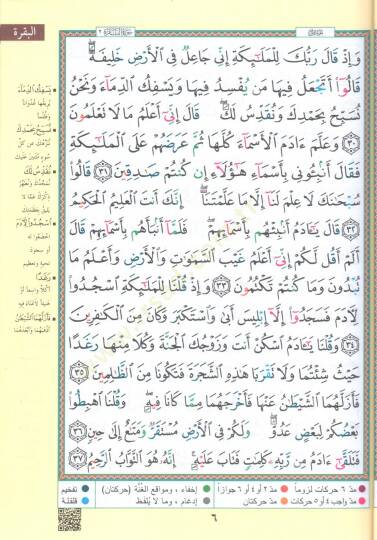 البقرة
وَإِذْ قَالَ رَبُّكَ لِلْمَلَٰٓئِكَةِ إِنِّى جَاعِلٌ فِى ٱلْأَرْضِ خَلِيفَةً ۖ
قَالُوٓا۟ أَتَجْعَلُ فِيهَا مَن يُفْسِدُ فِيهَا وَيَسْفِكُ ٱلدِّمَآءَ وَنَحْنُ
نُسَبِّحُ بِحَمْدِكَ وَنُقَدِّسُ لَكَ ۖ قَالَ إِنِّىٓ أَعْلَمُ مَا لَا تَعْلَمُونَ
٣٠ وَعَلَّمَ ءَادَمَ ٱلْأَسْمَآءَ كُلَّهَا ثُمَّ عَرَضَهُمْ عَلَى ٱلْمَلَٰٓئِكَةِ
فَقَالَ أَنۢبِـُٔونِى بِأَسْمَآءِ هَٰٓؤُلَآءِ إِن كُنتُمْ صَٰدِقِينَ ٣١ قَالُوا۟
سُبْحَٰنَكَ لَا عِلْمَ لَنَآ إِلَّا مَا عَلَّمْتَنَآ ۖ إِنَّكَ أَنتَ ٱلْعَلِيمُ ٱلْحَكِيمُ
٣٢ قَالَ يَٰٓـَٔادَمُ أَنۢبِئْهُم بِأَسْمَآئِهِمْ ۖ فَلَمَّآ أَنۢبَأَهُم بِأَسْمَآئِهِمْ قَالَ
أَلَمْ أَقُل لَّكُمْ إِنِّىٓ أَعْلَمُ غَيْبَ ٱلسَّمَٰوَٰتِ وَٱلْأَرْضِ وَأَعْلَمُ مَا
تُبْدُونَ وَمَا كُنتُمْ تَكْتُمُونَ ٣٣ وَإِذْ قُلْنَا لِلْمَلَٰٓئِكَةِ ٱسْجُدُوا۟
لِـَٔادَمَ فَسَجَدُوٓا۟ إِلَّآ إِبْلِيسَ أَبَىٰ وَٱسْتَكْبَرَ وَكَانَ مِنَ ٱلْكَٰفِرِينَ
٣٤ وَقُلْنَا يَٰٓـَٔادَمُ ٱسْكُنْ أَنتَ وَزَوْجُكَ ٱلْجَنَّةَ وَكُلَا مِنْهَا رَغَدًا
حَيْثُ شِئْتُمَا وَلَا تَقْرَبَا هَٰذِهِ ٱلشَّجَرَةَ فَتَكُونَا مِنَ ٱلظَّٰلِمِينَ ٣٥
فَأَزَلَّهُمَا ٱلشَّيْطَٰنُ عَنْهَا فَأَخْرَجَهُمَا مِمَّا كَانَا فِيهِ ۖ وَقُلْنَا ٱهْبِطُوا۟
بَعْضُكُمْ لِبَعْضٍ عَدُوٌّ ۖ وَلَكُمْ فِى ٱلْأَرْضِ مُسْتَقَرٌّ وَمَتَٰعٌ إِلَىٰ حِينٍ ٣٦
فَتَلَقَّىٰٓ ءَادَمُ مِن رَّبِّهِۦ كَلِمَٰتٍ فَتَابَ عَلَيْهِ ۚ إِنَّهُۥ هُوَ ٱلتَّوَّابُ ٱلرَّحِيمُ ٣٧
يَسْفِكُ الدِّمَاءَ
نُسَبِّحُ بِحَمْدِكَ
نُقَدِّسُ لَكَ
اسْجُدُوا لِآدَمَ
رَغَدًا
فَأَزَلَّهُمَا الشَّيْطَانُ
مدّ ٦ حركات لزوماً مدّ ٢ أو ٤ أو ٦ جوازاً إخفاء، ومواقع الغُنَّة (حركتان) تفخيم
مدّ واجب ٤ أو ٥ حركات مدّ حركتان إدغام، وما لا يُلفظ قلقلة
٦